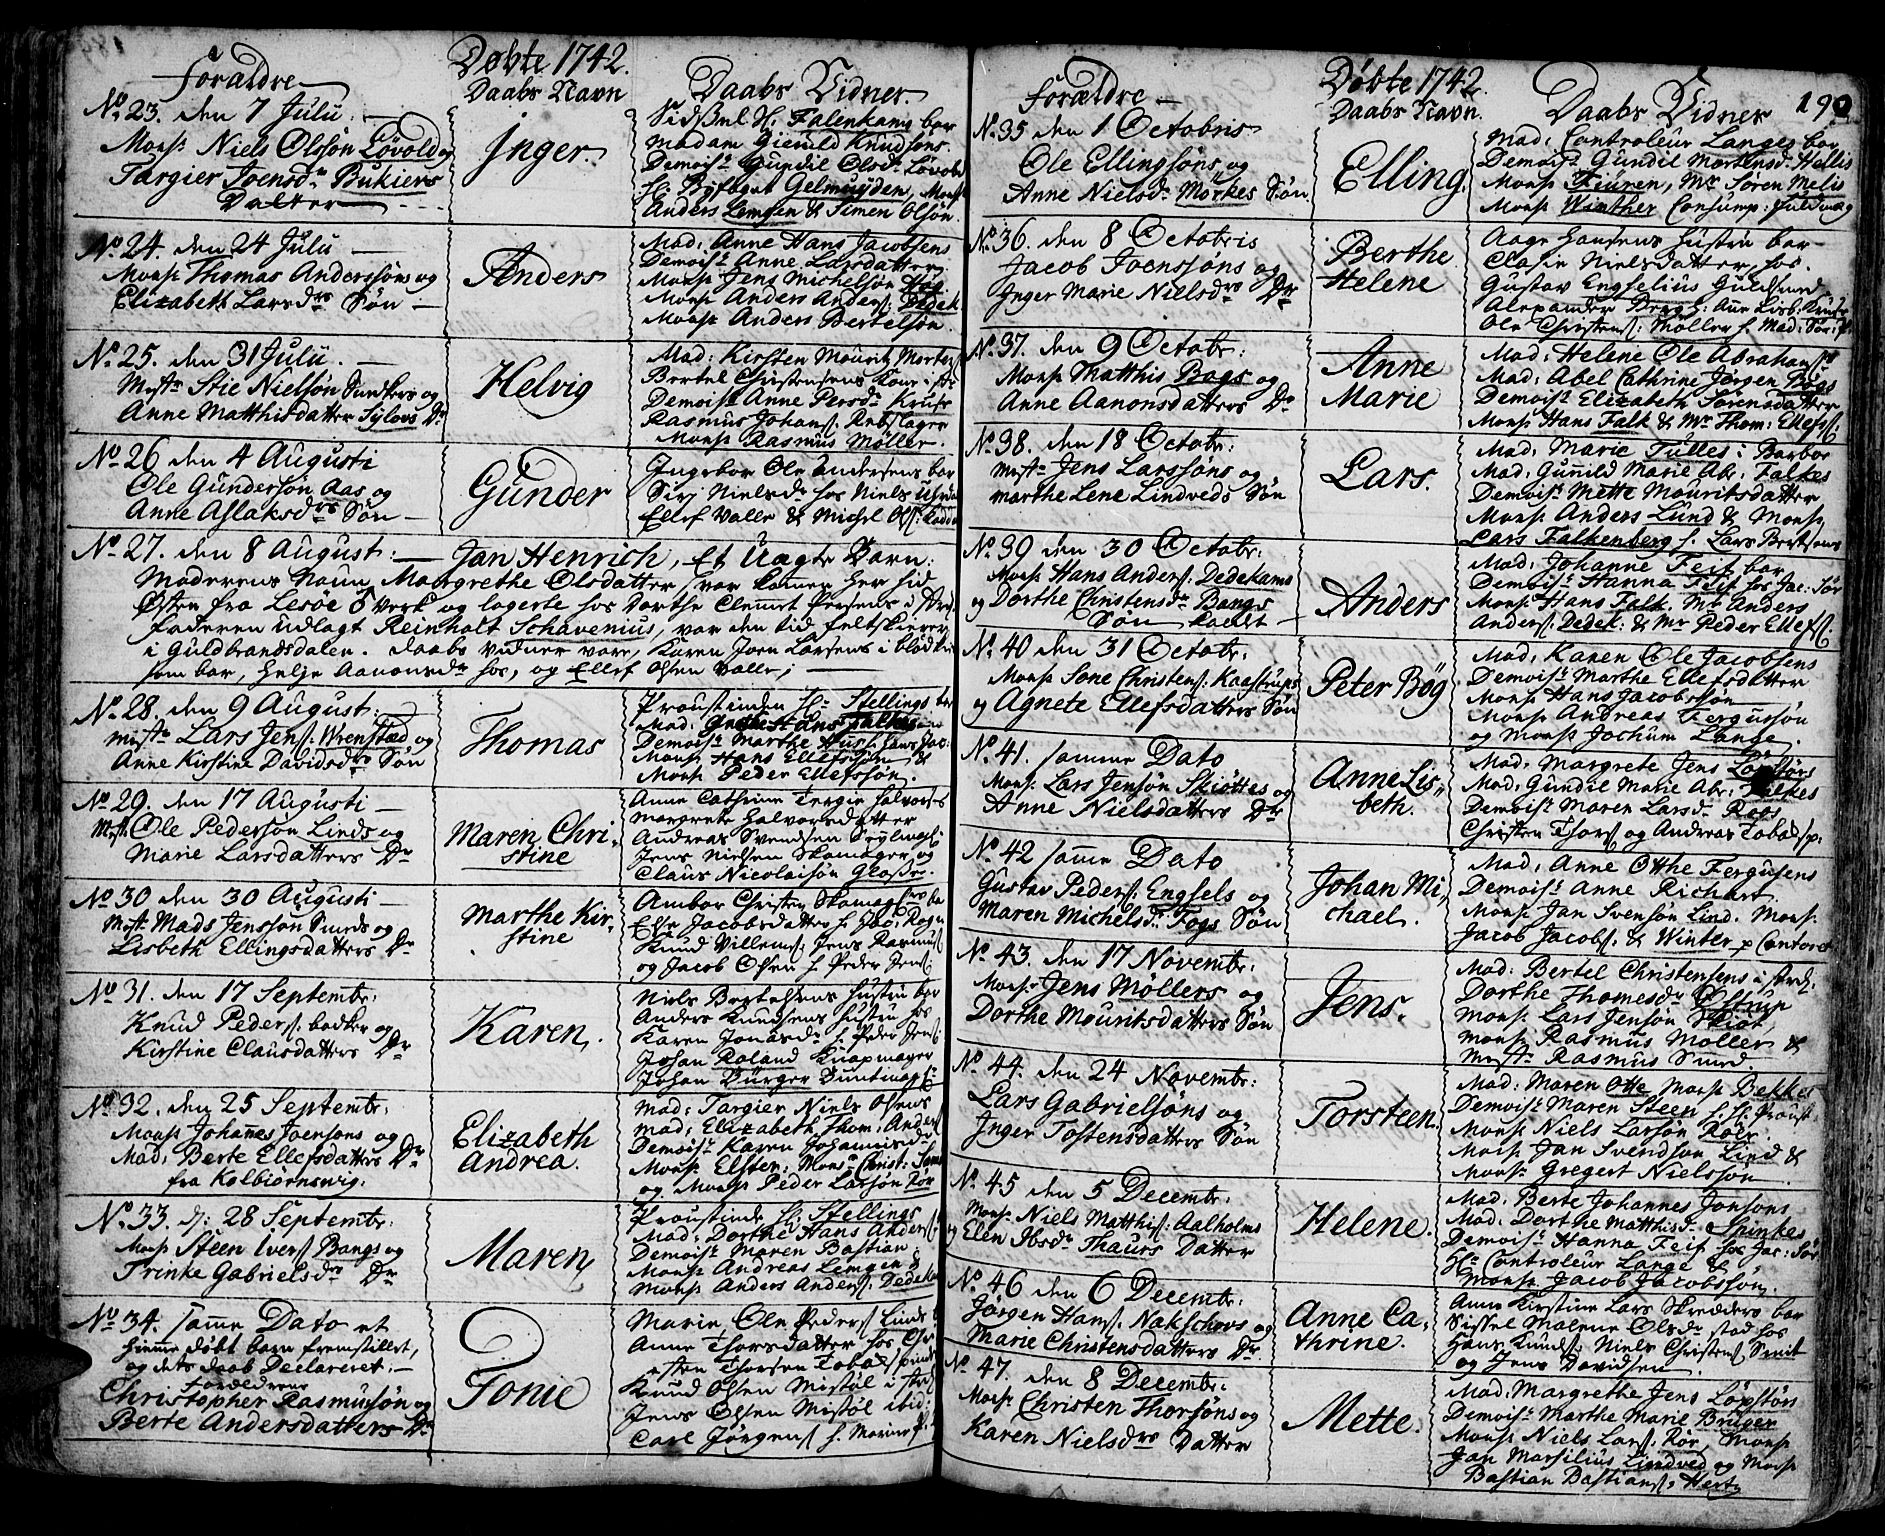 Døbte 1742.
Forældre
Daabs Navn
Daabs Vidner.
No. 23. den 7 Julii.
Mons. Niels Olssøn Løvold og
Targier Joensdr Bukiers
Datter
Inger.
Madam Gunild Knudsøns.
Demois. Gundil Olsdr Løvold
Hr Byfogut Gelmuyden, Mons.
Anders Lemgen & Simen Olsøn.
No. 24. den 24 Julii
Mons. Thomas Anderssøns og
Elizabeth Larsdrs Søn
Anders
Mad: Anne Hans Jacobsens
Demois. Anne Larsdatter
Mons. Jens Michelsøn
Mons. Anders Anders: Dedek
Mons. Anders Bertelsøn
No. 25. den 31 Julii.
Mestr Stie Nielsøn og
Anne Matthisdatter Sylovs Dr
Helvig
Mad: Kirsten Mourits
Bertel Christensens Kone
Demois. Anne Persdr Kruse
Rasmus Johans: Rebslager
Mons. Rasmus Møller.
No. 26 den 4 Augusti
Ole Gundersøn Aas og
Anne Aslaksdrs Søn
Gunder
Ingebor Ole Andersens bar
Siri Nielsdr hos Niels
Ellef Valle & Michel Ols:
No. 27. den 8 August: Jan Henrich, Et Uægte Barn:
Moderens Navn Margrethe Olsdatter, var kommen her hid
Østen fra Lesöe Verk og logerte hos Dorthe Clemmet Persens i
Faderen udlagt Reinholt Schavenius, var den tid feltskierer
i Guldbrandsdalen. Daabs Vidner vare, Karen Joen Larsens i
som bar, Helje Aanonsdr hos, og Ellef Olsen Valle;
No. 28. den 9 August:
Mestr Lars Jens: Wrenstæd og
Anne Kirstine Davidsdrs Søn
Thomas
Proustinden Hr Stellings bar
Mad:
Demois. Marthe Hus: Hans Jac:
Mons. Hans Ellefsøn &
Mons. Peder Ellefssøn.
No. 29. den 17 Augusti
Mest. Ole Pedersøn Linds og
Marie Larsdatters Dr
Maren Chri-
stine
Anne Cathrine Tergie Halvorses
Margrete Halvorsdatter
Andreas Svendsen
Jens Nielsen Skomager og
Claus Nicolaisøn
No. 30 den 30 Augusti
Mst. Mads Jenssøn Smeds og
Lisbeth Ellingsdatters Dr
Marthe Kir-
stine
Ambor Christen Skomagers bar
Else Jacobsdatter
Knud Villems: Jens Rasmus:
og Jacob Olsen h. Peder Jens:
No. 31. den 17 Septembr:
Knud Peders: bødker og
Kirstine Clausdatters Dr
Karen.
Niels Bertelsens Hustru bar
Anders Knudsens Hustru hos
Karen Jonasdr h. Peder Jens:
Johan Roland Knapmager
Johan Bürger Buntmager
No. 32. den 25 Septembr:
Mons. Johannes Joensøns og
Mad: Berte Ellefsdatters Dr
fra Kolbiørnsvig:
Elizabeth
Andrea.
Mad: Targier Niels Olsens
Mad: Elizabeth Thom: Anders
Demois. Karen Johannisdr
Mons. Elster: Mons. Christ:
og Mons. Peder Larsøn Rør
No. 33. d: 28 Septembr:
Mons. Steen Ivers: Bangs og
Trinke Gabrielsdrs Dr
Maren
Proustinde Hr Stellings
Mad: Dorthe Hans Anders
Demois. Maren Bastian:
Mons. Andreas Lemgen &
Mons. Anders Anders: Dedekam
No. 34. samme Dato et
hiemme døbt barn fremstillet,
og dets daab Declareret:
Forældrene
Christopher Rasmusøn og
Berte Andersdatters Dr
Tonie
Marie Ole Peders: Linds
Anne Thorsdatter hos
Thorsen Tobak spinder
Knud Olsen Mistøl i
Jens Olsen Mistøl ibid:
Carl Jørgens:
Døbte 1742.
190
Forældre
Daabs Navn.
Daabs Vidner
No. 35 den 1 Octobris
Ole Ellingsøns, og
Anne Nielsdr Morkes Søn
Elling.
Mad: Controleur Langes bar
Demois. Gundil Mortensd: Hellis
Mons. Feuren, Mr Søren Melis
Mons. Winther Consump:
No. 36. den 8 Octobris
Jacob Joenssøns og
Inger Marie Nielsdrs Dr
Berthe
Helene
Aage Hansens Hustru bar
Nielsdatter, hos.
Gustav Engselius Guldsmed
Alexander Berg
Ole Christens: Møller
No. 37. den 9 Octobr:
Mons. Matthis Bogs og
Anne Aanonsdatters Dr
Anne
Marie
Mad: Helene Ole Abrahams
Mad: Abel Cathrine Jørgen Bøgs
Demois. Elizabeth Sørensdatter
Mons. Hans Falk & Mr Thom: Ellefs:
No. 38. den 18 Octobr:
Mestr Jens Larssøns og
Marthe Lene Lindveds Søn
Lars.
Mad: Marie Tulles i Barbor
Mad: Gunild Marie Abr: Falkes
Demois: Mette Mouritsdatter
Mons. Anders Lund & Mons.
Lars Falkenberg h. Lars Bertsens
No. 39 den 30 Octobr:
Mons. Hans Anders: Dedekams
og Dorthe Christensdr Bangs
Søn kaldt
Anders
Mad: Johanne Feit bar
Demois. Hanna Feit hos Jac: Sør
Mons. Hans Falk. Mr Anders
Anders: Dedek: & Mr Peder Ellefs:
No. 40 den 31 Octobr:
Mons. Sone Christens: Kaastrups
og Agnete Ellefsdatters Søn
Peter Bøg
Mad: Karen Ole Jacobsens
Demois. Marthe Ellefsdatter
Mons. Hans Jacobssøn
Mons. Andreas Fergussøn
og Mons. Jochum Lange.
No. 41. samme Dato
Mons. Lars Jensøn Skiøttes og
Anne Nielsdatters Dr
Anne Lis-
beth.
Mad: Margrete Jens Løpstørs
Mad: Gundil Marie Abr: Falkes
Demois. Maren Larsdr
Christen Thors: og Andreas Tobaksp:
No. 42 samme Dato
Gustav Peders: Engsels og
Maren Michelsdr: Fogs Søn
Johan Mi-
chael.
Mad: Anne Otthe Fergusens
Demois. Anne Richart
Mons. Jan Svensøn Lind. Mons.
Jacob Jacobs: & Winter p Contoret
No. 43. den 17 Novembr:
Mons. Jens Møllers og
Dorthe Mouritsdatters Søn
Jens.
Mad: Bertel Christensens i
Dorthe Thomesdr
Mons. Lars Jensøn Skiøt,
Mons. Rasmus Møller &
Mestr Rasmus Smed.
No. 44. den 24 Novembr:
Lars Gabrielsøns og
Inger Tostensdatters Søn
Torsteen.
Mad: Maren Otte Mons. Bekkes
Demois. Maren Steen
Mons. Niels Larsøn Rør
Mons. Jan Svendsøn Lind &
Mons. Gregert Nielssøn
No. 45 den 5 Decembr:
Mons. Niels Matthis: Aalholms
og Elen Ibsdr Thaurs Datter
Helene.
Mad: Berte Johannes Jonsøns
Mad: Dorthe Matthisdr Spinkes
Demois. Hanna Feit hos Jac: Sør
Hr Controleur Lange &
Mons. Jacob Jacobssøn.
No. 46 den 6 Decembr:
Jørgen Hans: Nakschovs og
Marie Christensdatters Dr
Anne Ca-
thrine.
Anne Kirstine Lars Skredders bar
Sissel Malene Olsdr stod hos
Hans Knuds: Niels Christens: Smit
og Jens Davidsen
No. 47. den 8 Decembr:
Mons. Christen Thorsøns og
Karen Nielsdrs Datter
Mette.
Mad: Margrethe Jens Løpstørs
Demois. Marthe Marie Brüger
Mons. Niels Lars: Rør, Mons.
Jan Marsilius Lindved og Mons.
Bastian Bastians: